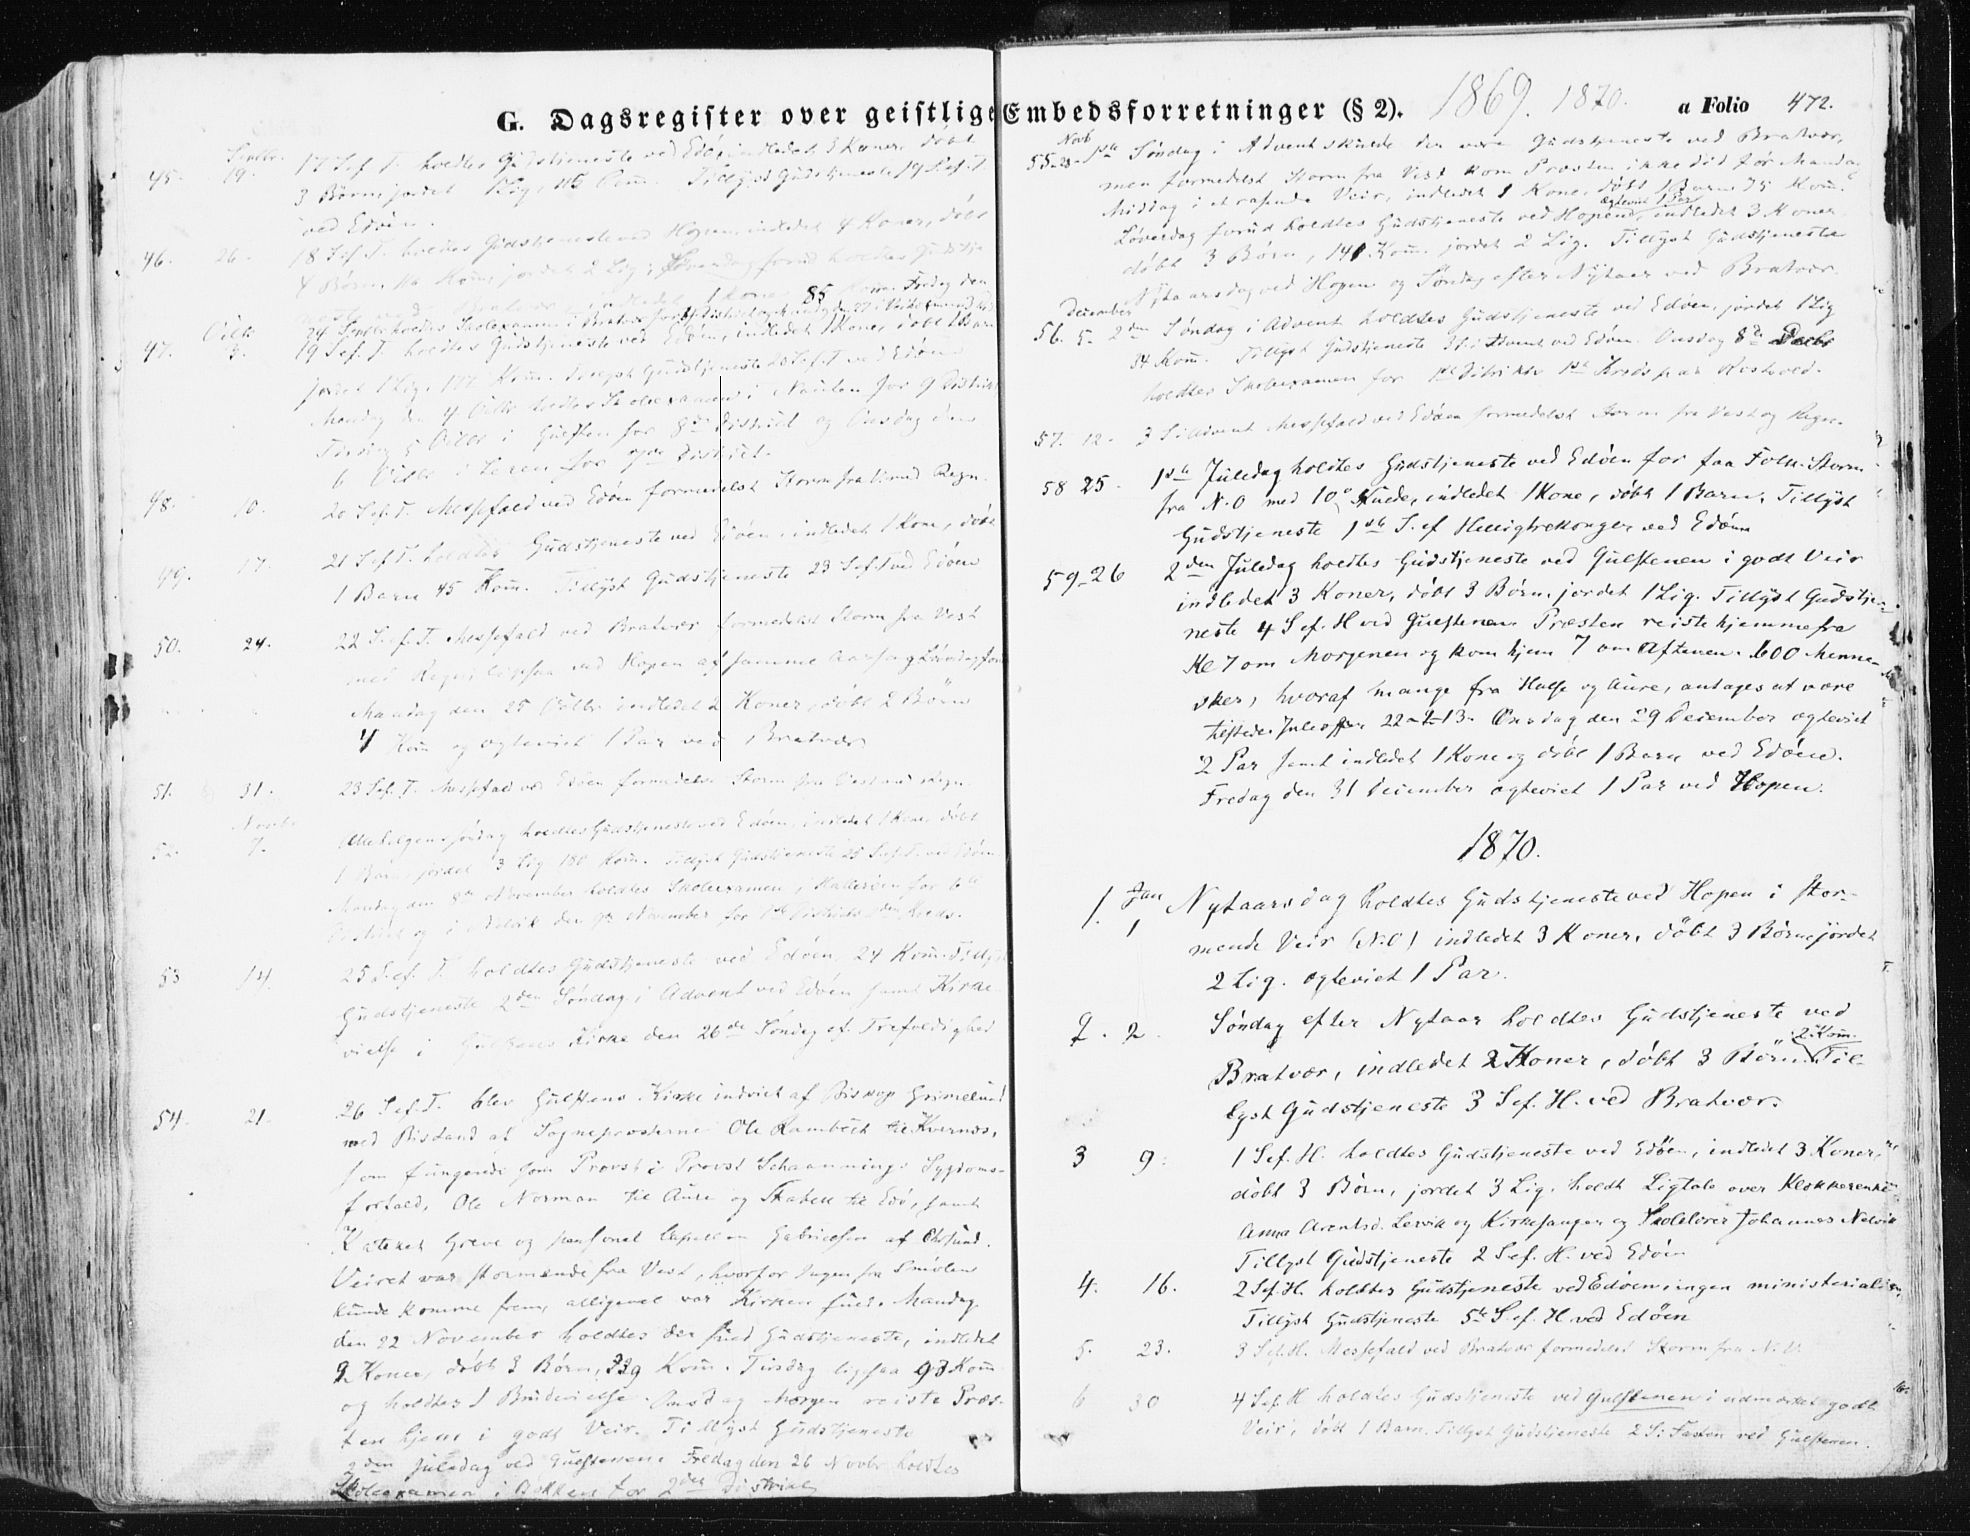 G. Dagsregister over geistlige Embedsforretninger (§ 2). 1869. 1870. a Folio 472.
Septbr.
45. 19. 17 S ef T. holdtes Gudstjeneste ved Edø, indledet 5 Koner, døbt
3 Børn, jordet Lig, Kom. Tillyst Gudstjeneste 19 S ef T.
ved Edøen.
46. 26. 18 S ef T. holdtes Gudstjeneste ved Hopen, indledet 4 Koner, døbt
4 Børn, Kom, jordet 2 Lig; Løverdag forud holdtes Gudstje
indledet 1 Kone 85 Kom. Fredag den
24 Septbr holdtes Skoleexamen i Bratvær
Octb
47. 3. 19 S ef. T. holdtes Gudstjeneste ved Edøen, indledet 1 Kone, døbt 1 Barn
jordet 1 Lig, 177 Kom. Tillyst Gudstjeneste 20 S ef T ved Edøen
Mandag den 4 Octbr holdtes Skoleexamen i for 9 District
Tirsdag 5 Octbr i Gulsten for 8de District og Onsdag den
6 Octbr i for 7de District.
48. 10. 20 S ef. T. Messefald ved Edøen formedelst Storm fra med Regn.
49. 17. 21 S ef T. holdtes Gudstjeneste ved Edøen, indledet 1 Kone, døbt
1 Barn 45 Kom. Tillyst Gudstjeneste 23 S ef T ved Edøen
50. 24. 22 S. ef. T. Messefald ved Bratvær formedelst Storm fra Vest
med Regn, ligesaa ved Hopen af samme Aarsag Løverdag forud
Mandag den 25 Octbr indledet 2 Koner, døbt 2 Børn
4 Kom og egteviet 1 Par ved Bratvær
51. 31. 23 S ef. T. Messefald ved Edøen formedelst Storm fra Vest med Regn
Novbr
52. 7. Allehelgens Søndag holdtes Gudstjeneste ved Edøen, indledet 1 Kone, døbt
1 Barn, jordet 3 Lig 180 Kom. Tillyst Gudstjeneste 25 S ef T. ved Edøen
Mandag den 8de November holdtes Skoleexamen i for 6te
District og i den 9de November for District Kreds.
53 14. 25 S. ef. T. holdtes Gudstjeneste ved Edøen, 24 Kom. Tillyst
Gudstjeneste 2den Søndag i Advent ved Edøen samt Kirke
vielse i Gulstens Kirke den 26de Søndag ef. Trefoldighed
54. 21. 26 S ef. T. blev Gulstens Kirke indviet af Biskop Grimelund
med Bistand af Sognepræsterne Ole Rambech til Kvernæs,
som fungerende som Provst i Provst Schaannings Sygdoms-
forfald, Ole Norman til Aure og til Edø, samt
Kateket Greve og personel Capellan Gabrielsen af Chrsund.
Veiret var stormende fra Vest, hvorfor Ingen fra Smølen
kunde komme frem, alligevel var Kirken fuld. Mandag
den 22 November holdtes der fuld Gudstjeneste, indledet
2 Koner, døbt 3 Børn, 239 Kom. Tirsdag ligesaa 98 Kom
og holdtes 1 Brudevielse. Onsdag Morgen reiste Præs-
ten hjem i godt Veir. Tillyst Gudstjeneste
2den Juledag ved Gulstenen. Fredag den 26 Novbr holdtes
Skoleexamen i Bakken for 2det District
Novb
55 28. 1ste Søndag i Advent skulde der være Gudstjeneste ved Bratvær,
men formedelst Storm fra Vest kom Præsten ikke did før Mandag
Middag i et rasende Veir, indledet 1 Kone, døbt 1 Barn 75 Kom.
Løverdag forud holdtes Gudstjeneste ved Hopen, egteviet 1 Par, indledet 3 Koner
døbt 3 Børn, 141 Kom. jordet 2 Lig. Tillyst Gudstjeneste
Nytaarsdag ved Hopen og Søndag efter Nytaar ved Bratvær.
December
56. 5. 2den Søndag i Advent holdtes Gudstjeneste ved Edøen, jordet 1 Lig
84 Kom. Tillyst Gudstjeneste 3 S i Advent ved Edøen. Onsdag 8de Decbr
holdtes Skoleexamen for 1ste Distrikts 1ste Kreds paa Rosvold.
57. 12. 3 S i Advent Messefald ved Edøen formedelst Storm fra Vest og Regn.
58 25. 1ste Juledag holdtes Gudstjeneste ved Edøen for faa Folk. Storm
fra N.O med 10° Kulde, indledet 1 Kone, døbt 1 Barn. Tillyst
Gudstjeneste 1ste S. ef Helligtrekonger ved Edøen
59 26 2den Juledag holdtes Gudstjeneste ved Gulstenen i godt Veir
indledet 3 Koner, døbt 3 Børn, jordet 1 Lig. Tillyst Gudstje-
neste 4 S ef. H ved Gulstenen. Præsten reiste hjemmefra
Kl 7 om Morgenen og kom hjem 7 om Aftenen. 600 Menne-
sker, hvoraf mange fra Halse og Aure, antages at være
tilstede. Juleoffer 22-2-13. Onsdag den 29 December egteviet
2 Par samt indledet 1 Kone og døbt 1 Barn ved Edøen.
Fredag den 31 December egteviet 1 Par ved Hopen.
1870.
1. Jan 1 Nytaarsdag holdtes Gudstjeneste ved Hopen i stor-
mende Veir (N.O) indledet 3 Koner, døbt 3 Børn, jordet
2 Lig. egteviet 1 Par.
2. 2. Søndag efter Nytaar holdtes Gudstjeneste ved
Bratvær, indledet 2 Koner, døbt 3 Børn. 2 Kom. Til-
lyst Gudstjeneste 3 S ef. H. ved Bratvær.
3 9. 1 S ef. H. holdtes Gudstjeneste ved Edøen, indledet 3 Koner,
døbt 3 Børn, jordet 3 Lig. holdt Ligtale over Klokkerenke
Anna Arentsd. Lervik og Kirkesanger og Skolelærer Johannes Nelvik
Tillyst Gudstjeneste 2 S ef. H. ved Edøen
4. 16. 2 S ef. H. holdtes Gudstjeneste ved Edøen ingen ministerialier,
Tillyst Gudstjeneste 5te S. ef. H ved Edøen
5. 23. 3 S ef. H. Messefald ved Bratvær formedelst Storm fra N.V.
6 30 4 S ef. H holdtes Gudstjeneste ved Gulstenen i udmærket godt
Veir, døbt 1 Barn. Tillyst Gudstjeneste 2 S: Fasten ved Gulstenen.